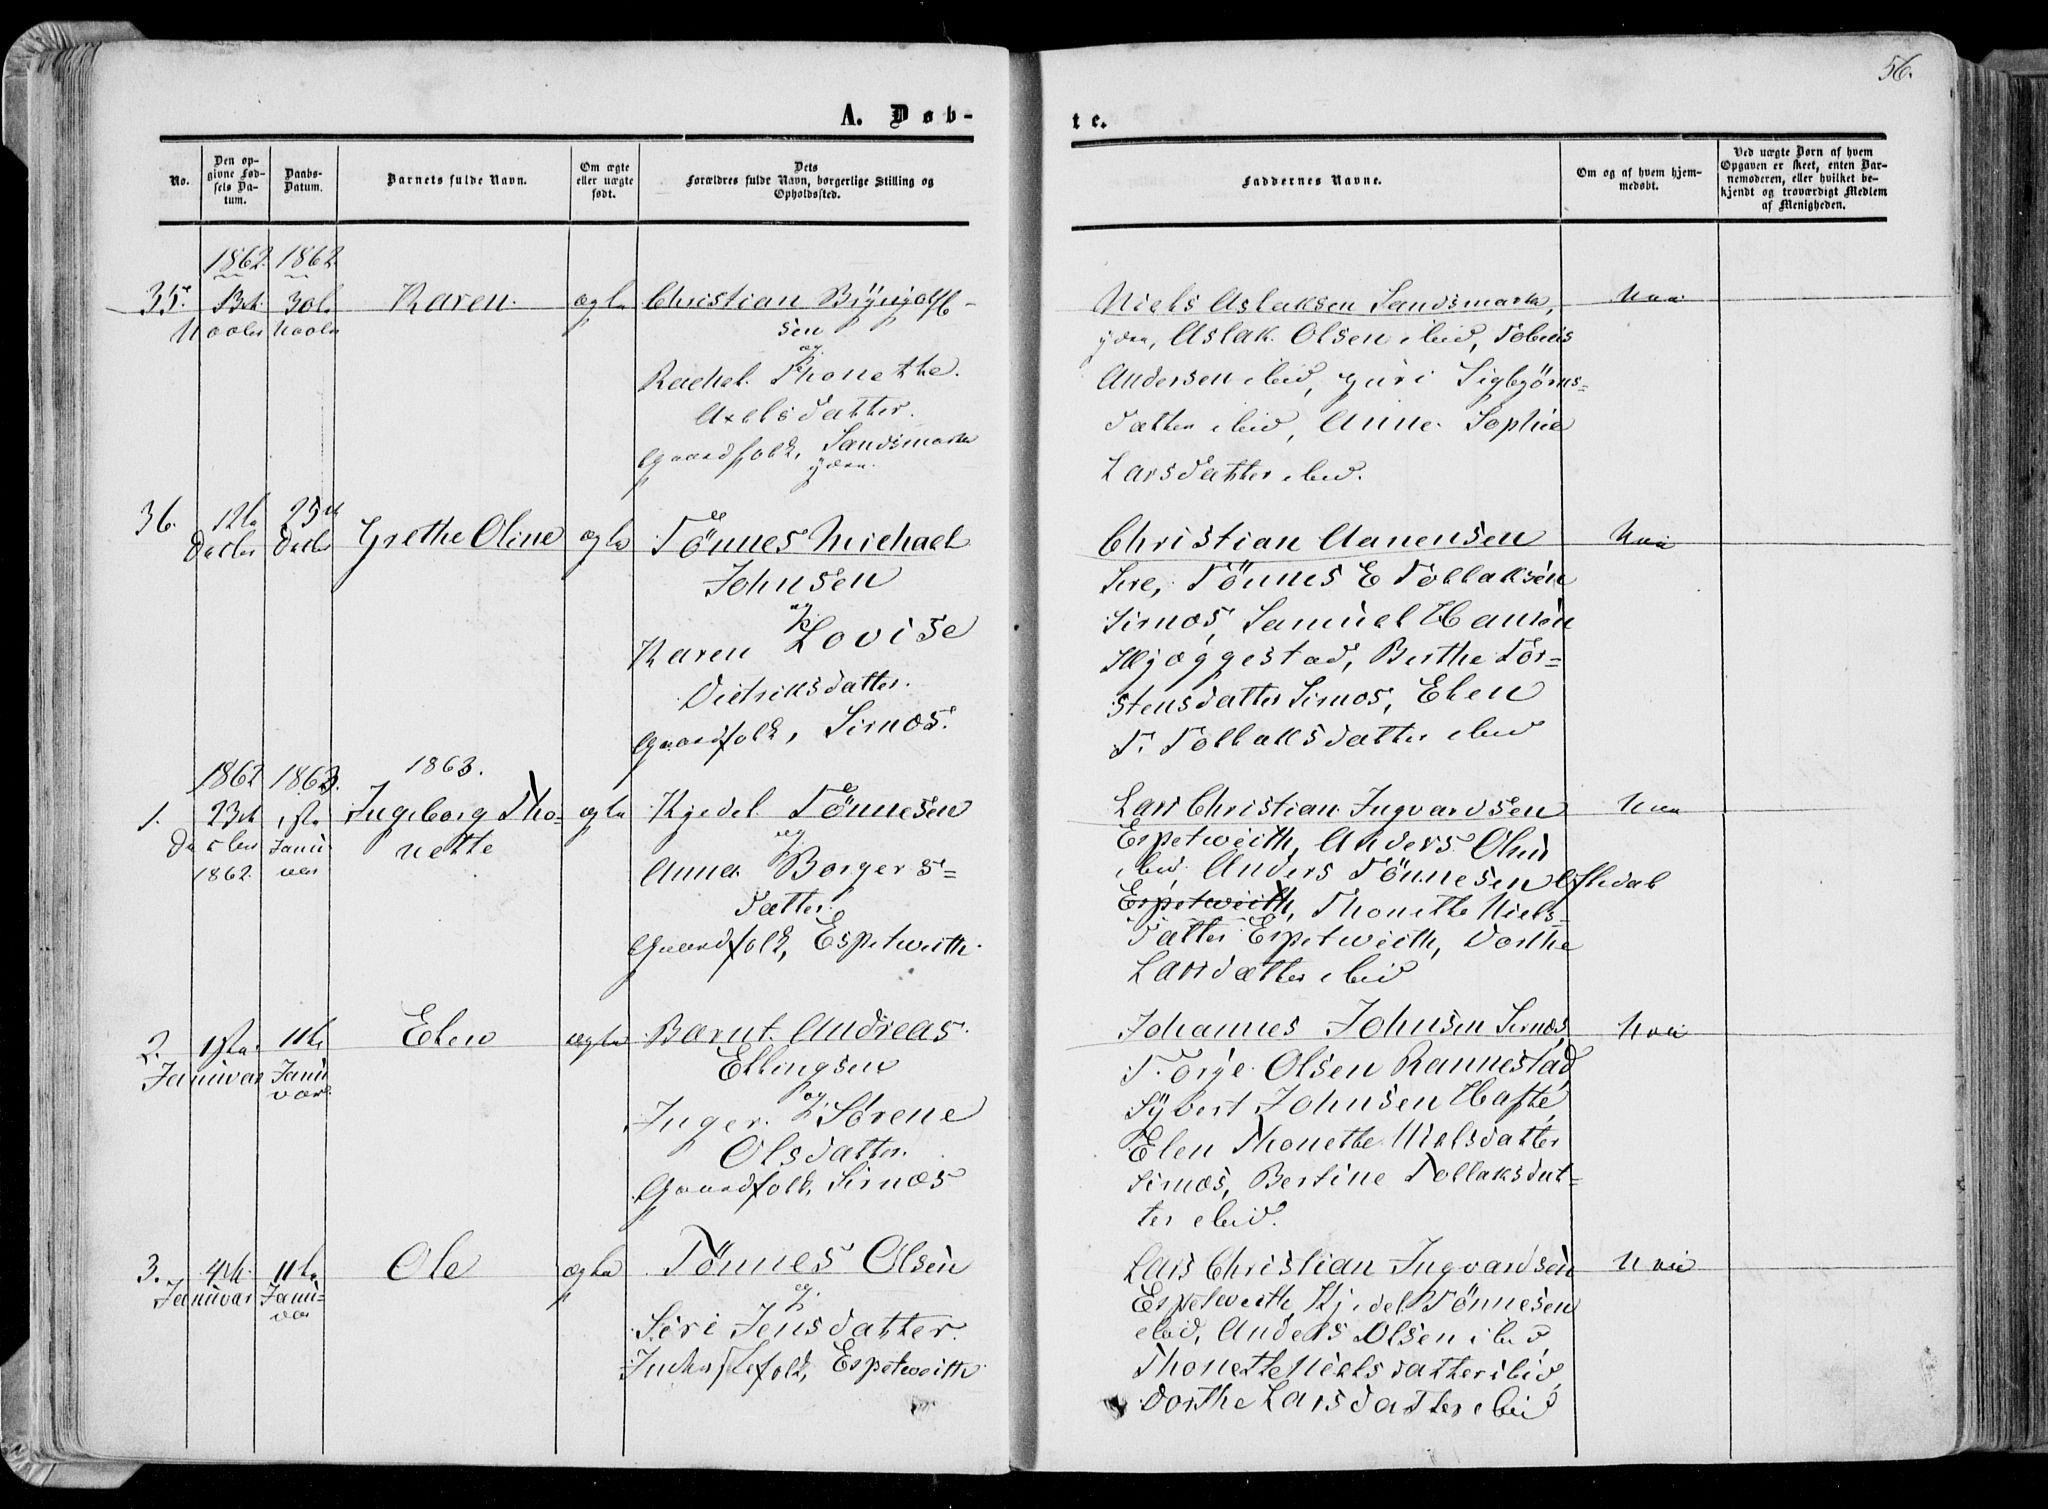 56.
A. Døb-
te.
No.
Den op-
givne Fød-
sels Da-
tum.
Daabs-
Datum.
Barnets fulde Navn.
Om ægte
eller uægte
født.
Dets
Forældres fulde Navn, borgerlige Stilling og
Opholdssted.
Faddernes Navne.
Om og af hvem hjem-
medøbt.
Ved uægte Børn af hvem
Opgaven er skeet, enten Bar-
nemoderen, eller hvilket be-
kjendt og troværdigt Medlem
af Menigheden.
1862. 1862
35. 30te Karen. ægte Christian Bryngelf-
sen
og
Rachel Thonethe
Axelsdatter.
Gaardfolk, Sandsmark
ydre.
Niels Aslaksen Sandsmark,
ydre, Aslak Olsen ibid, Tobias
Andersen ibid, Guri Sigbjørns=
datter ibid, Anne Sophie
Larsdatter ibid.
36. 12te 25de Grethe Oline ægte Tönnes Michael
Johnsen
og
Karen Lovise
Didriksdatter.
Gaardfolk, Sirnæs.
Christian Aanensen
Sire, Tönnes E Tollaksen
Sirnæs, Samuel Hansen
Skjeggestad, Berthe Tor=
stensdatter Sirnæs, Elen
T. Tollaksdatter ibid
1862 1863. 1863.
1. 23de 1ste Ingeborg Tho= ægte Kjedel Tönnesen
nette
Janu
var
1862
og
Anna Borgers=
datter.
Gaardfolk, Espetweith.
Lars Christian Ingvardsen
Espetweith, Anders Olsen
ibid, Anders Tönnesen Oftedal
Espetweith, Thonethe Niels=
datter Espetweith, Dorthe
Larsdatter ibid
2. 1ste 11te Elen ægte Barnt Andreas
Januvar Janu
var.
Ellingsen
og
Inger Sørene
Olsdatter.
Gaardfolk, Sirnæs
Johannes Johnsen Sirnæs,
Torje Olsen Rannestad
Sÿvert Johnsen Hafte,
Elen Thonethe Nielsdatter
Sirnæs, Bertine Tollaksdat=
ter ibid.
3. 4de 11te Ole ægte Tönnes Olsen
Januvar Janu=
var
og
Siri Jensdatter.
Inderstefolk, Espetweith
Lars Christian Ingvardsen
Espetweith, Kjedel Tönnesen
ibid, Anders Olsen ibid,
Thonette Nielsdatter ibid,
Dorthe Larsdatter ibid